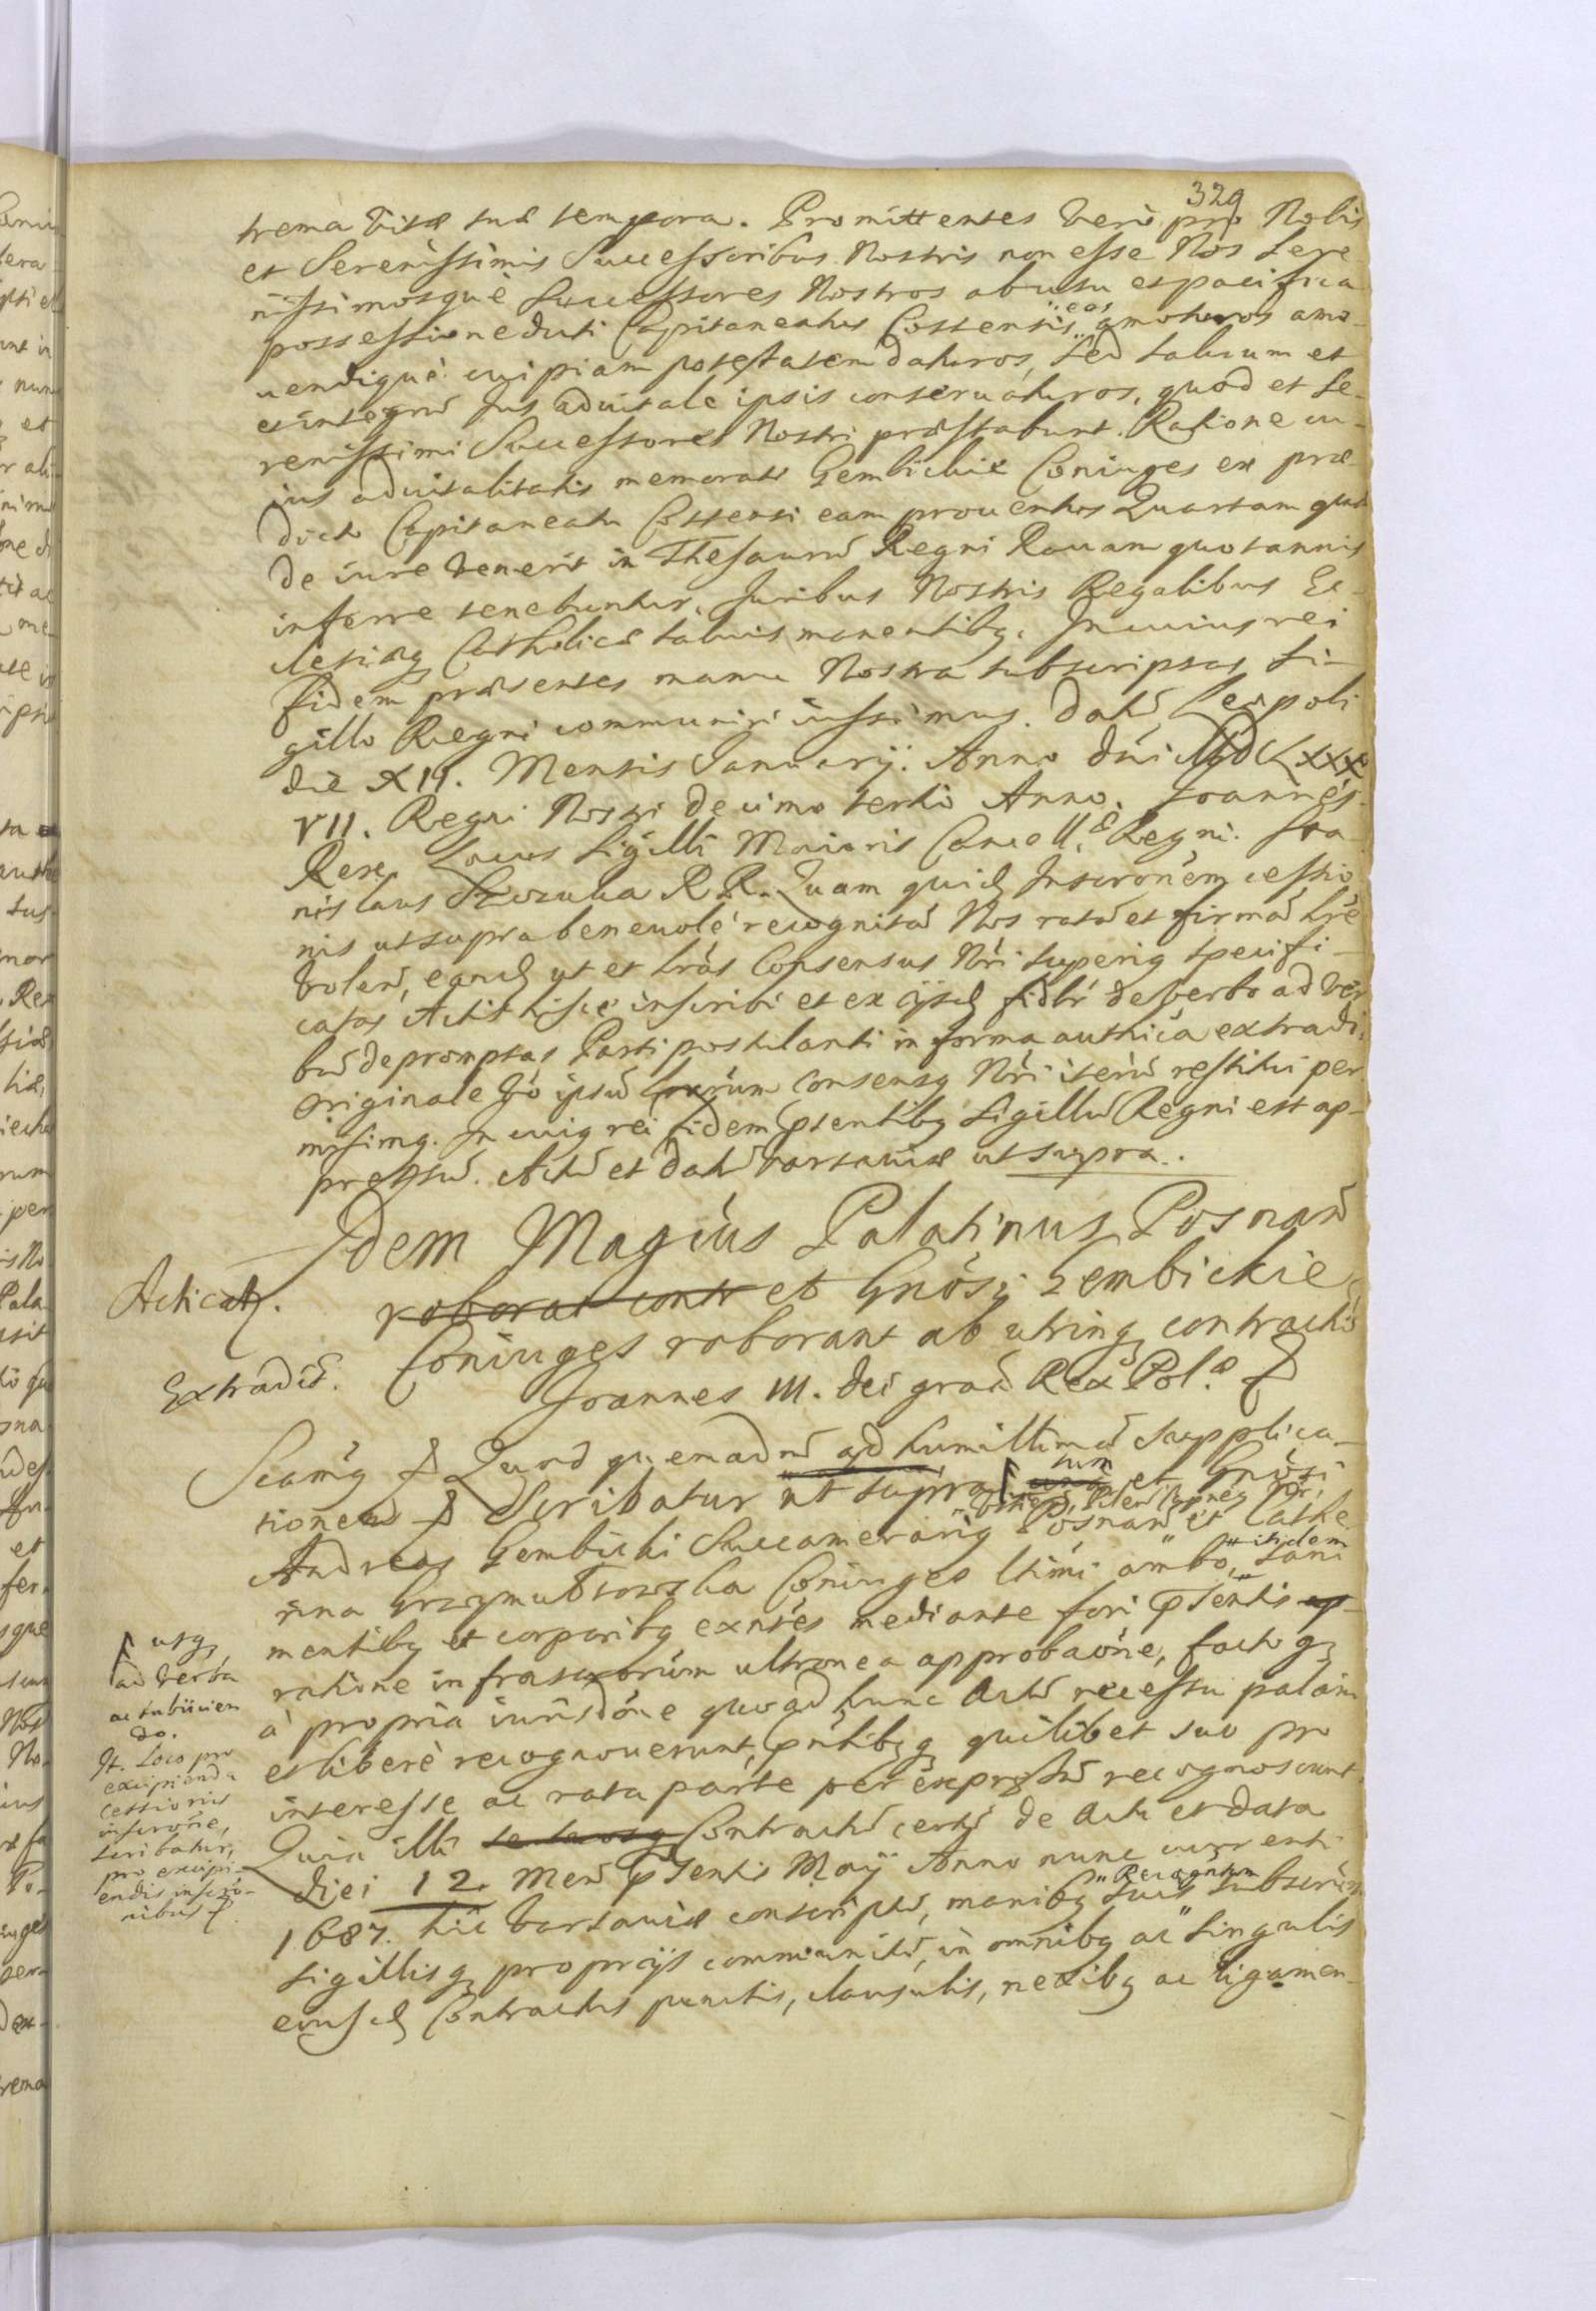 329
trema Vitæ suæ tempora. Promittentes Verò pro Nobis
et Serenissimis Successoribus Nostris non esse Nos Sere
nissimosquè Successores Nostros ab usu et pacifica
possessione dicti Capitaneatus Costensis eos amoturos amo-
uendiquè cuipiam potestatem daturos, sed saluum et
et integrū Jus aduitale ipsis conseruaturos, quod et Se-
renissimi Successores Nostri præstabunt. Ratione cu-
ius aduitalitatis memorati Gembickie Coniuges ex præ-
dicto Capitaneatu Costensi eam prouentus Quartam quæ
de iure Venerit in Thesaurū Regni Rauam quotannis
inferre tenebuntur, Juribus Nostris Regalibus Ec-
clesiæq Catholicæ saluis manentibq. In cuius rei
fidem præsentes manu Nostra subscriptas Si-
gillo Regni communiri iussimus. Datū Leopoli
die XII. Mensis Januarij. Anno Dni MDCLXXX
VII. Regni Nostri decimo tertio Anno. Joannes
Rex. Locus Sigilli Maioris Cancell. Regni. Sta
nislaus Szczuka R R. Quam quid Inscronem cessio
nis ut supra beneuolè recognitā Nos ratā et firmā hre
volen, eand ut et lras Consensus Nri superiq specifi-
catas Actis hisce inscribi et ex ijsd fidlr de verbo ad Ver
bū depromptas Parti postulanti in forma authica extradi,
originale vo ipsū lrarum Consensq Nri iterū restitui per
misimq. In cuiq rei fidem pntibq Sigillū Regni est ap-
pressū. Actū et datū Varsauiæ ut supra.
Idem Magcus Palatinus Posnan
Acticat.
roborat contr et Gnosi Gembickie
Coniuges roborant ab utrinq contractū
Extradit.
Joannes III. Dei gra Rex Pol.
Scamq Quod quemadmū ad humillimā supplica-
tionem Scribatur ut supra tum et Gnosi
Andreas Gembicki Succamerariq Posnan et Cathe
rina Grzymułtowska Coniuges ltimi ambo, itidem sani
mentibq et corporibq exntes mediante fori pntis
ratione infrascrorum ultronea approbaone, factoq
à propria iurisdone quo ad hunc Actū recessu palam
et liberè recognouerunt, pntibq quilibet suo pro
interesse ac rata parte per expressū recognoscunt.
Quia illi Contractū certū de Actu et data
diei 12. Men pntis Maij Anno nunc currenti
1687. hic Varsauiæ conscriptū, manibq suis Recogntium subscrū
sigillisq proprijs communitū, in omnibq ac singulis
eiusd Contractus punctis, clausulis, nexibq ac ligamen-
usq
ad verba
ac subijcien
do.
It. Loco pro
excipienda
cessionis
inscrone,
scribatur,
pro excipi-
endis inscro-
nibus